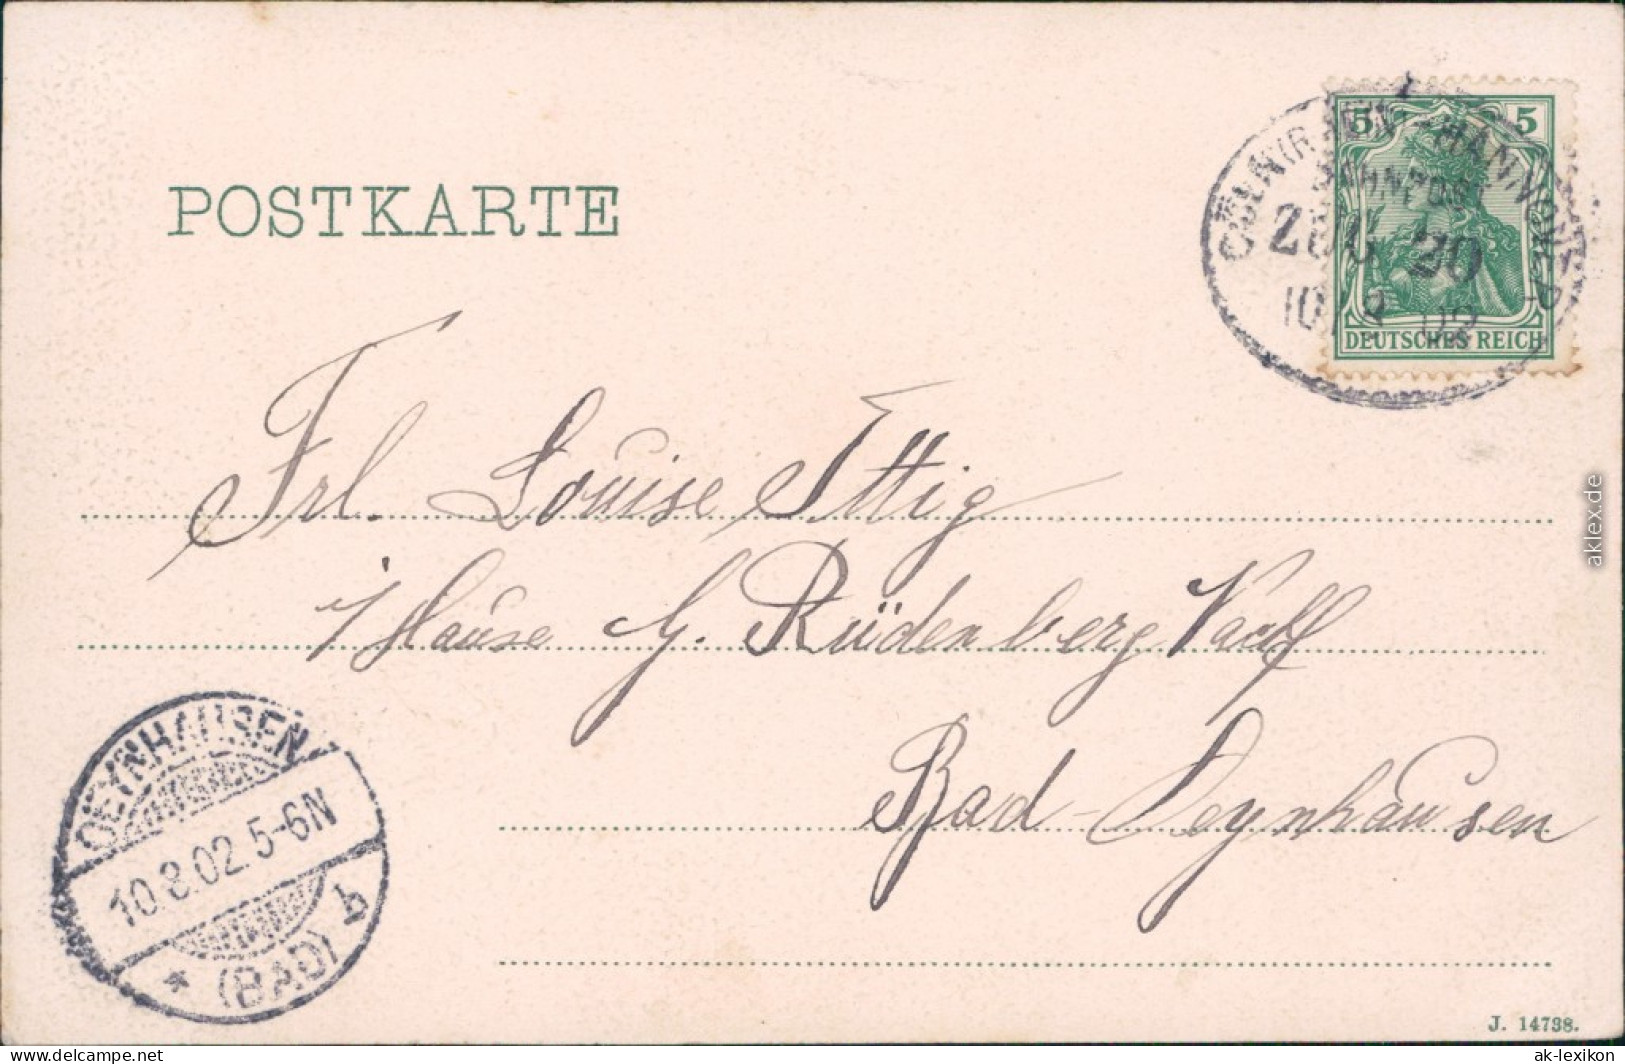 POSTKARTE
5 5
DEUTSCHES REICH
CÖLN(RHEIN)-HANNOVER
BAHNPOST
ZUG 20
10/8 02
Frl. Louise Ittig
i/Hause G. Rüdenberg
Bad-Oeynhausen
OEYNHAUSEN
10.8.02.5-6N
* (BAD) A
J. 14738.
aklex.de
delcampe.net
ak-lexikon